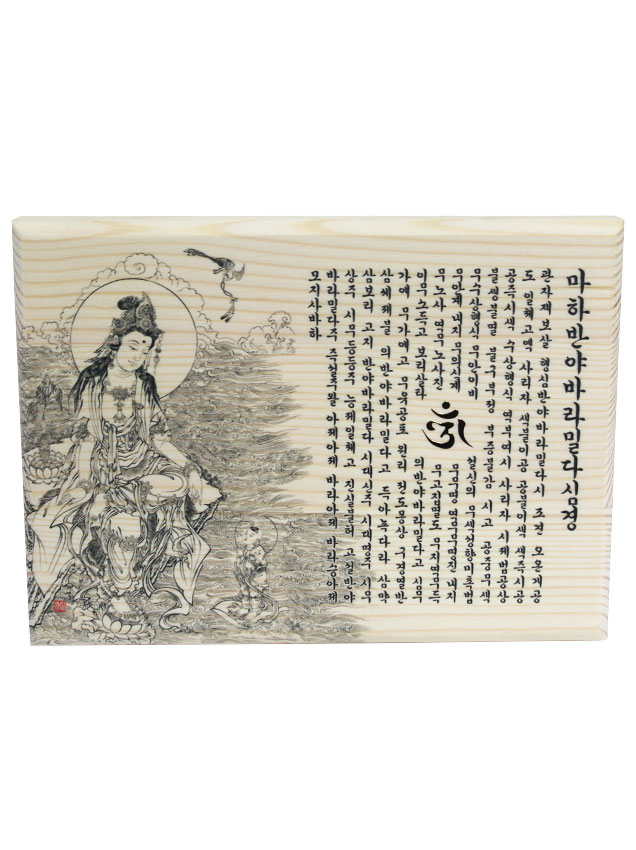 마하반야바라밀다심경
관자재보살 행심반야바라밀다시 조견 오온개공
도 일체고액 사리자 색불이공 공불이색 색즉시공
공즉시색 수상행식 역부여시 사리자 시제법공상
불생불멸 불구부정 부증불감 시고 공중무색
무수상행식 무안이비 설신의 무색성향미촉법
무안계 내지 무의식계 무무명 역무무명진 내지
무노사 역무노사진 무고집멸도 무지역무득
이무소득고 보리살타 의반야바라밀다고 심무
가애 무가애고 무유공포 원리 전도몽상 구경열반
삼세제불 의반야바라밀다고 득아녹다라 삼막
삼보리 고지 반야바라밀다 시대신주 시대명주 시무
상주 시무등등주 능제일체고 진실불허 고설반야
바라밀다주 즉설주왈 아제아제 바라아제 바라승아제
모지사바하